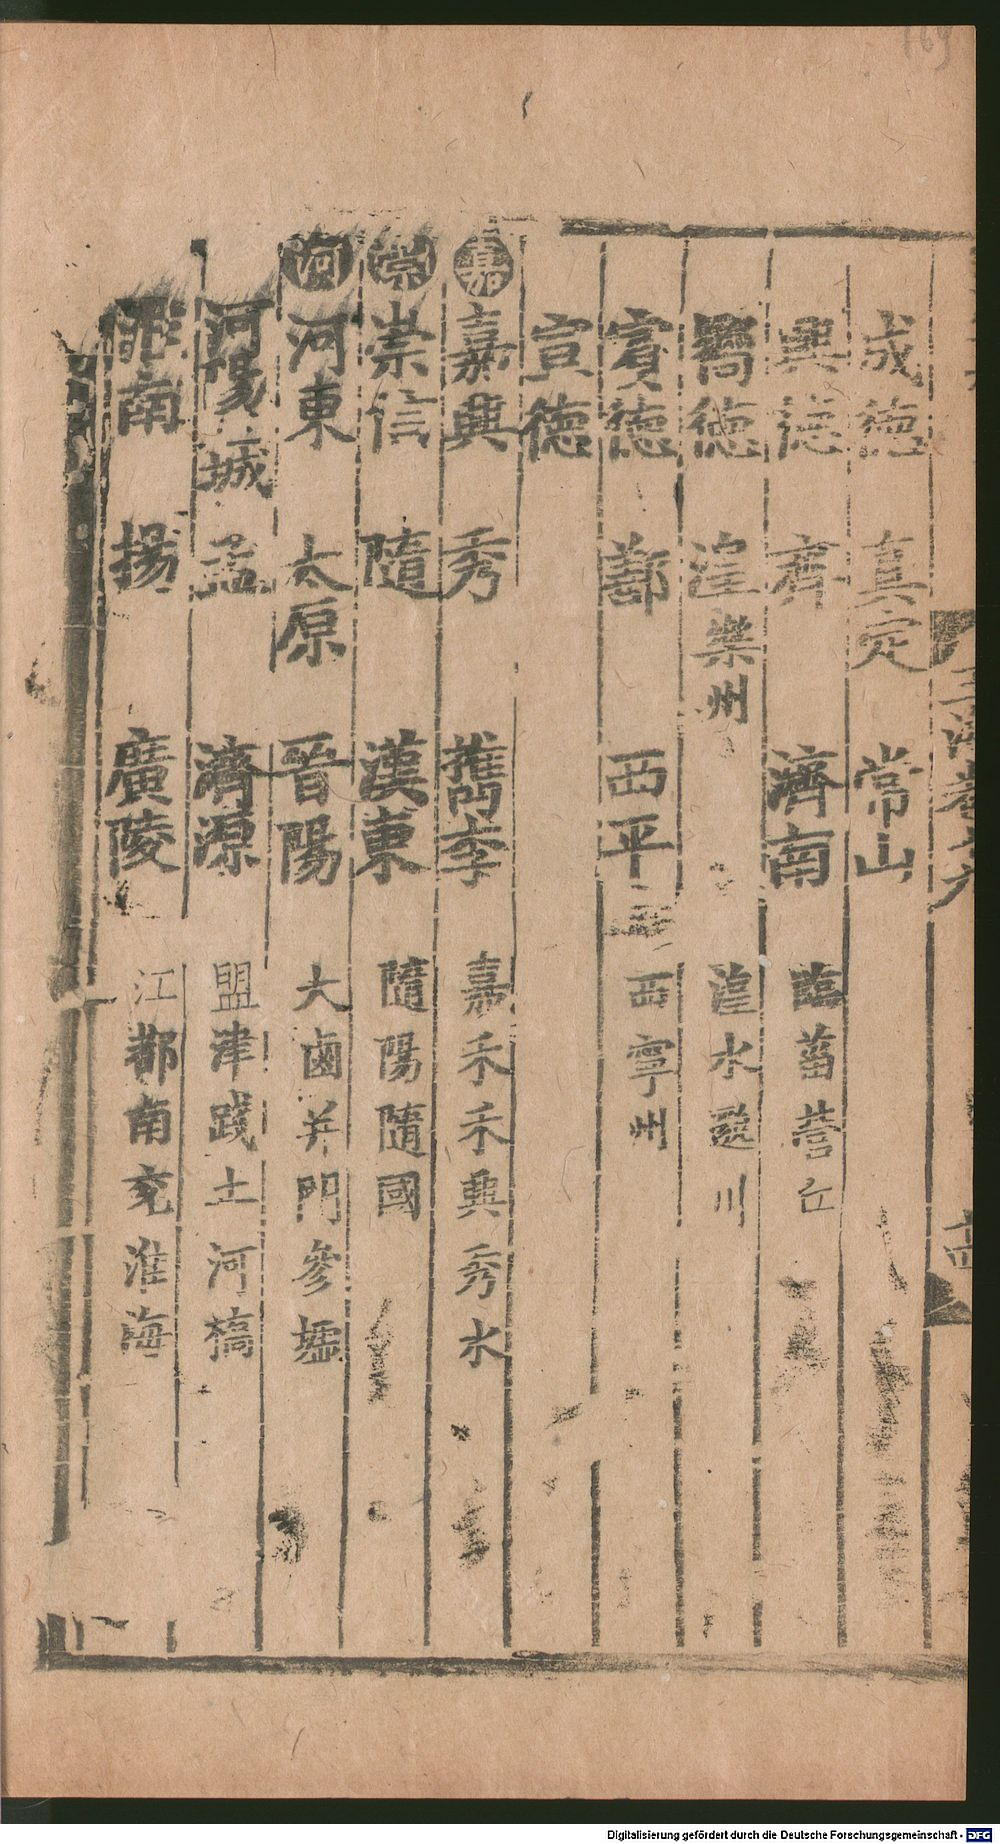 169
成德 真定 常山
興德 齊 濟南 臨菑營丘
嚮德 湟 樂州 湟水邈川
賓德 鄯 西平 西寧州
宣德
嘉 嘉興 秀 檇李 嘉禾禾興秀水
崇 崇信 隨 漢東 隨陽隨國
河 河東 太原 晉陽 大鹵并門參墟
河陽 城 孟 濟源 盟津踐土河橋
淮南 揚 廣陵 江都南兖淮海
Digitalisierung gefördert durch die Deutsche Forschungsgemeinschaft - DFG